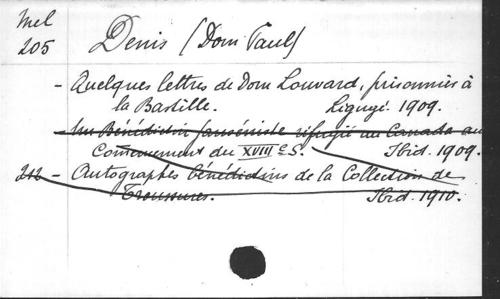 Mel
205
Denis (Dom Paul)
- Quelques lettres de Dom Louvard, prisonnier à
la Bastille. Ligugé. 1909.
- Un Bénédictin janséniste réfugié au Canada au
Commencement du XVIIIe S. Ibid. 1909.
212 - Autographes bénédictins de la Collection de
Troussures. Ibid. 1910.